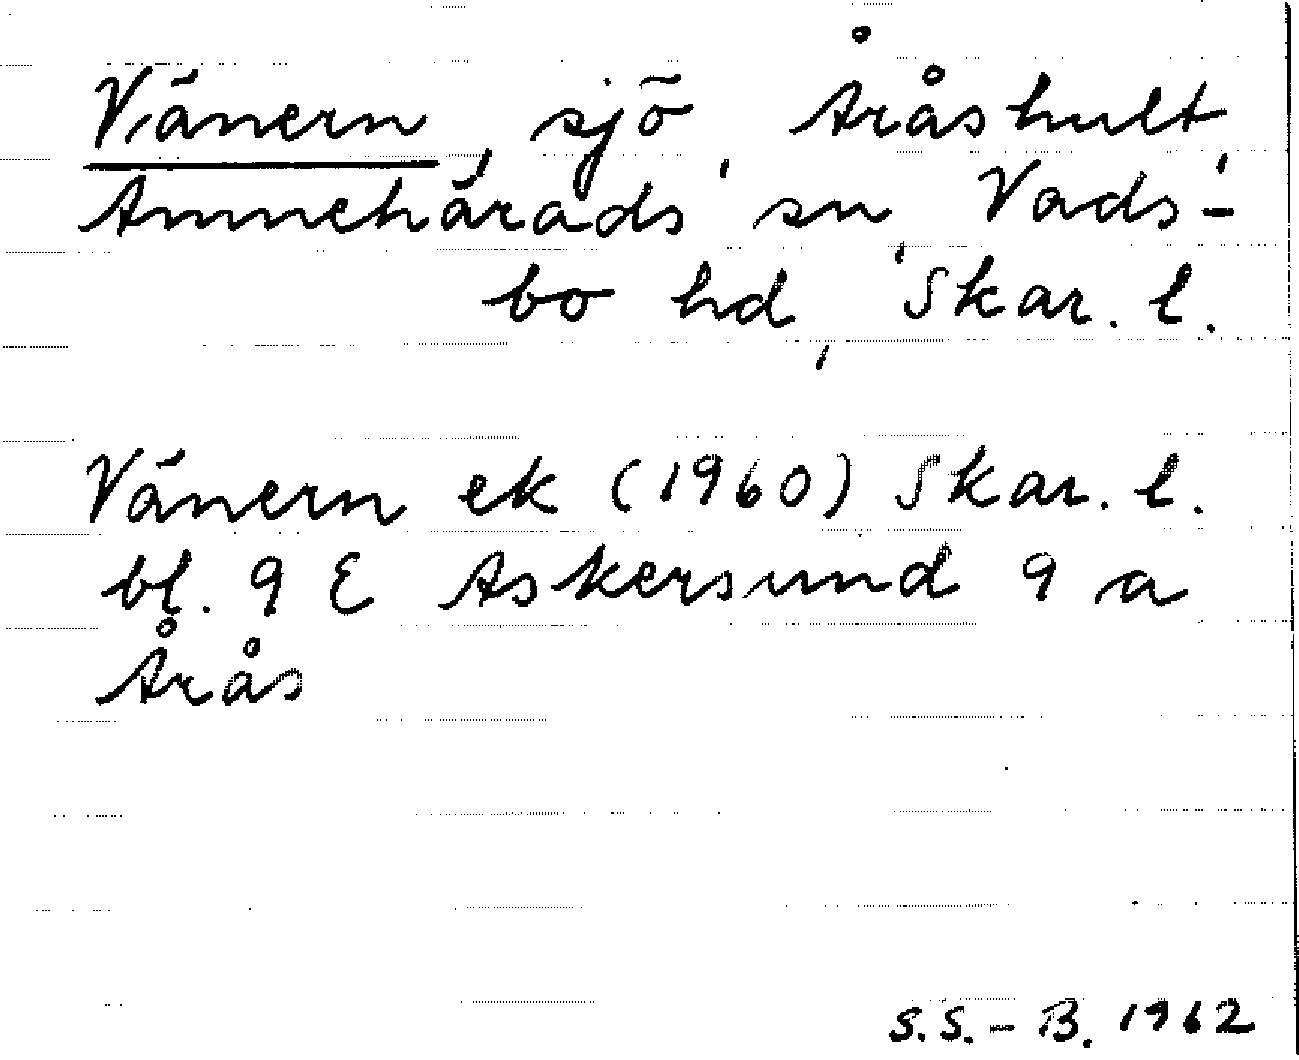 Vänern, sjö, Åråshult,
Amnehärads sn, Vads-
bo hd, Skar. l.
Vänern ek (1960) Skar. l.
bl. 9 E Askersund 9 a
Årås
S.S.-B. 1962